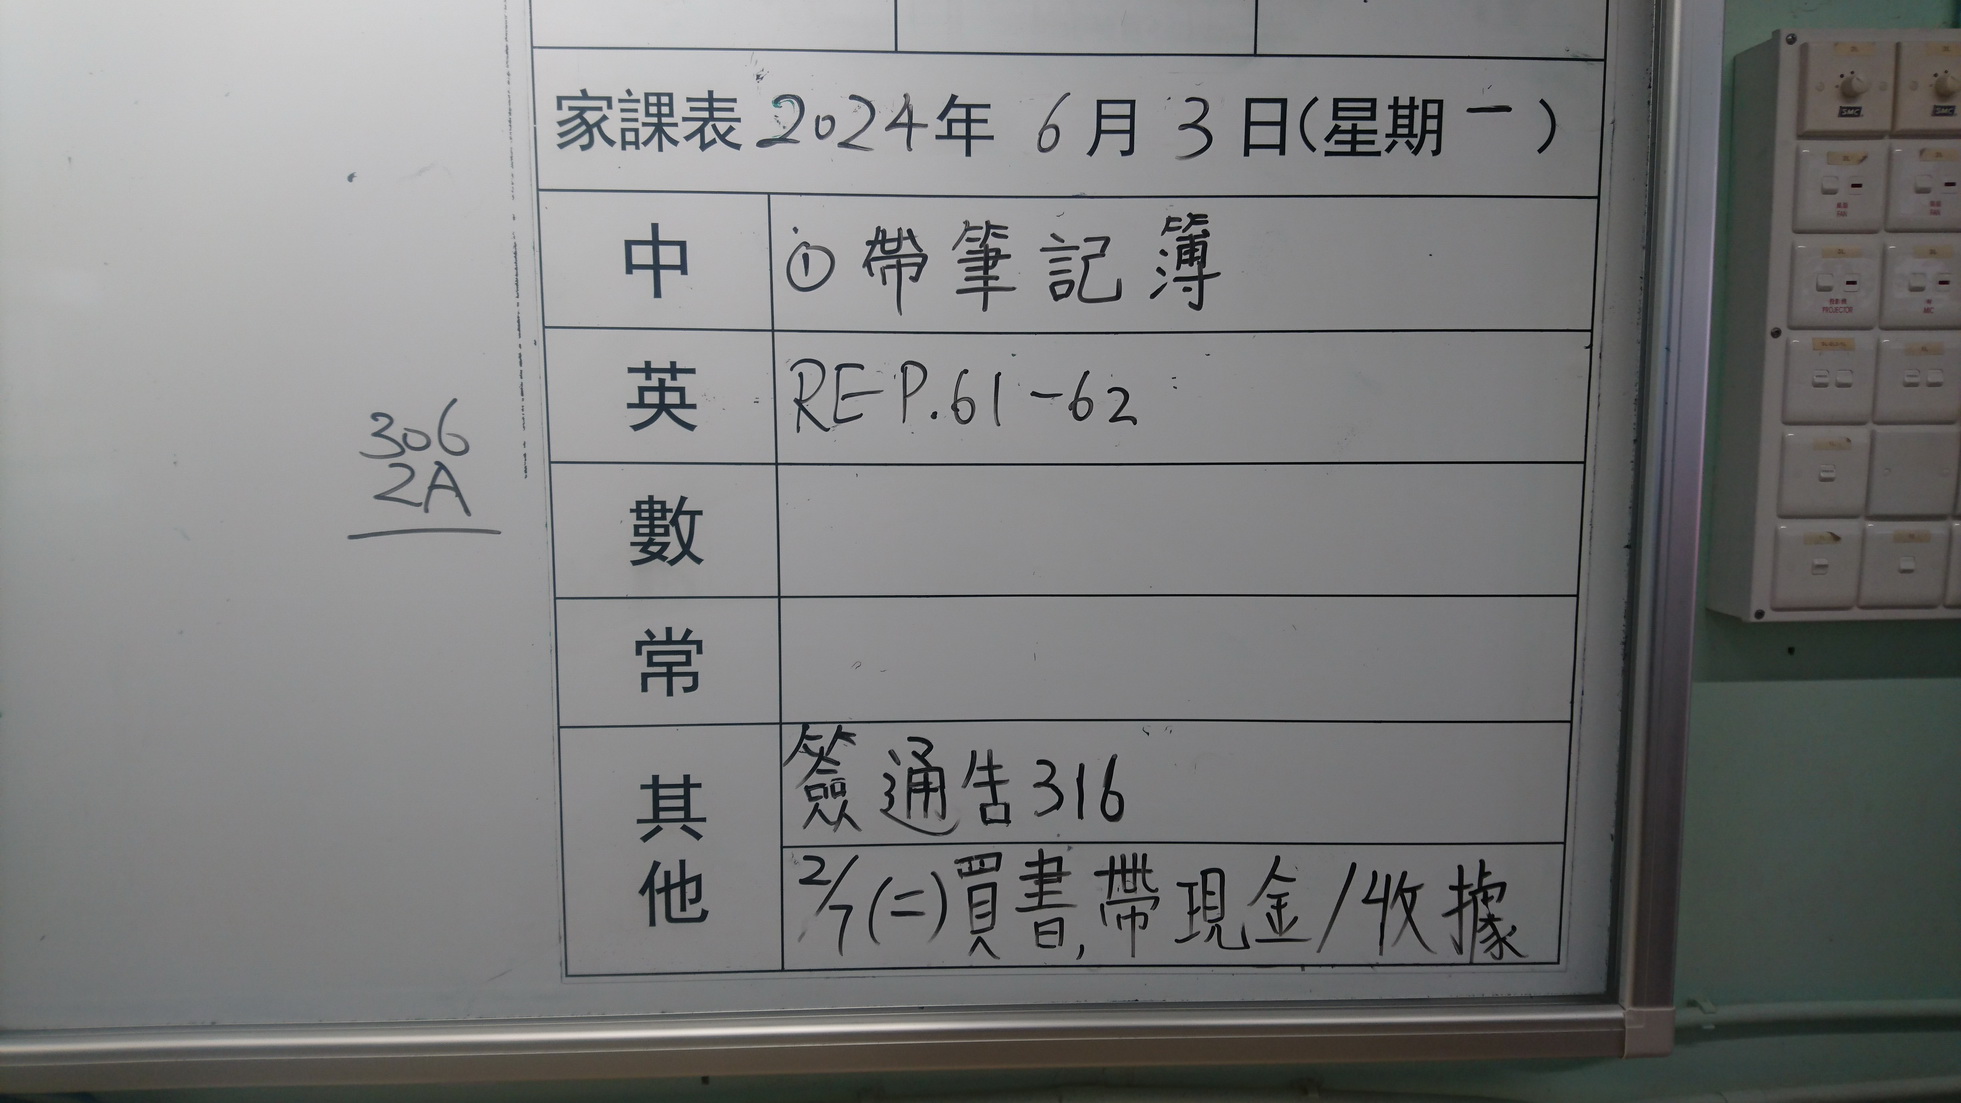 家課表 2024年 6月 3日(星期一)
中 ① 帶筆記簿
英 RE P.61-62
數
常
其他 簽通告316
2/7(二)買書,帶現金/收據
306
2A
SMC
SMC
FAN
FAN
PROJECTOR
MIC